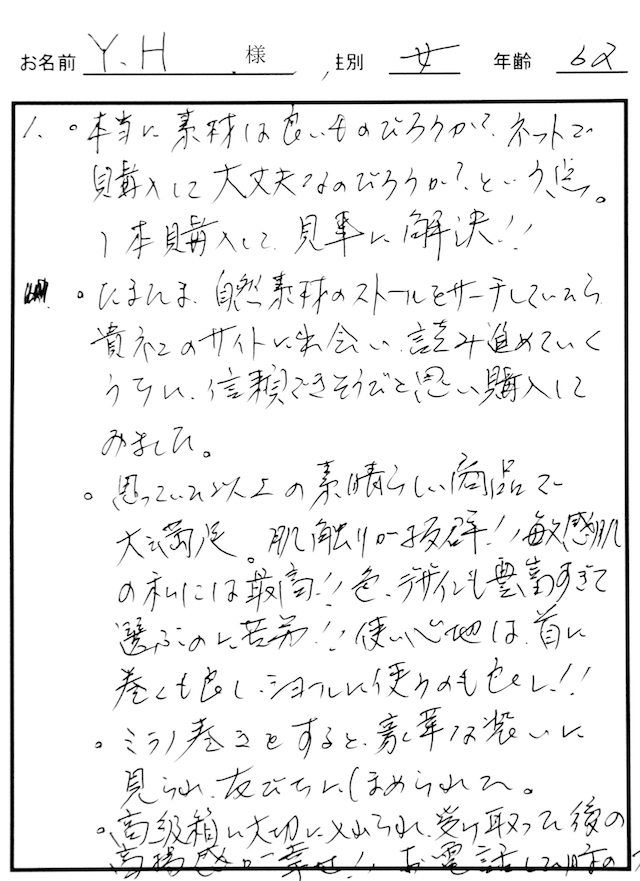 お名前 Y.H 様 性別 女 年齢 62
1. 。本当に素材は良いものだろうか?ネットで
購入して大丈夫なのだろうか?という点。
1本購入して、見事に解決!!
。たまたま、自然素材のストールをサーチしていたら
貴社のサイトに出会い、読み進めていく
うちに、信頼できそうだと思い購入して
みました。
。思っていた以上の素晴らしい商品で
大満足。肌触りが抜群!!敏感肌
の私には最高!!色、デザインも豊富すぎて
選ぶのに苦労!!使い心地は、首に
巻くも良し、ショールに使うのも良し!!
。ミラノ巻きをすると、豪華な装いに
見られ、友だちにほめられた。
。高級箱に大切に入れられ、受け取った後の
高揚感が幸せ!!お電話した時の